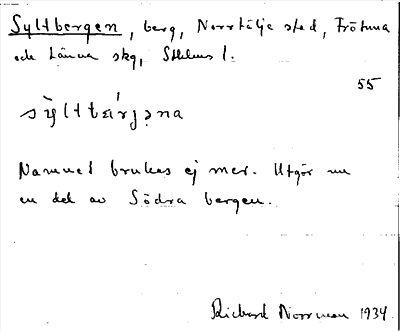 Syltbergen, berg, Norrtälje stad, Frötuna
och Länna skg, Sthlms l.
55
sỳlttárjəna
Namnet brukas ej mer. Utgör nu
en del av Södra bergen.
Richard Norrman 1934.